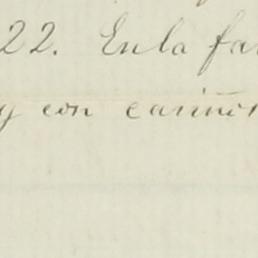 22. En la fa
y con cariñ